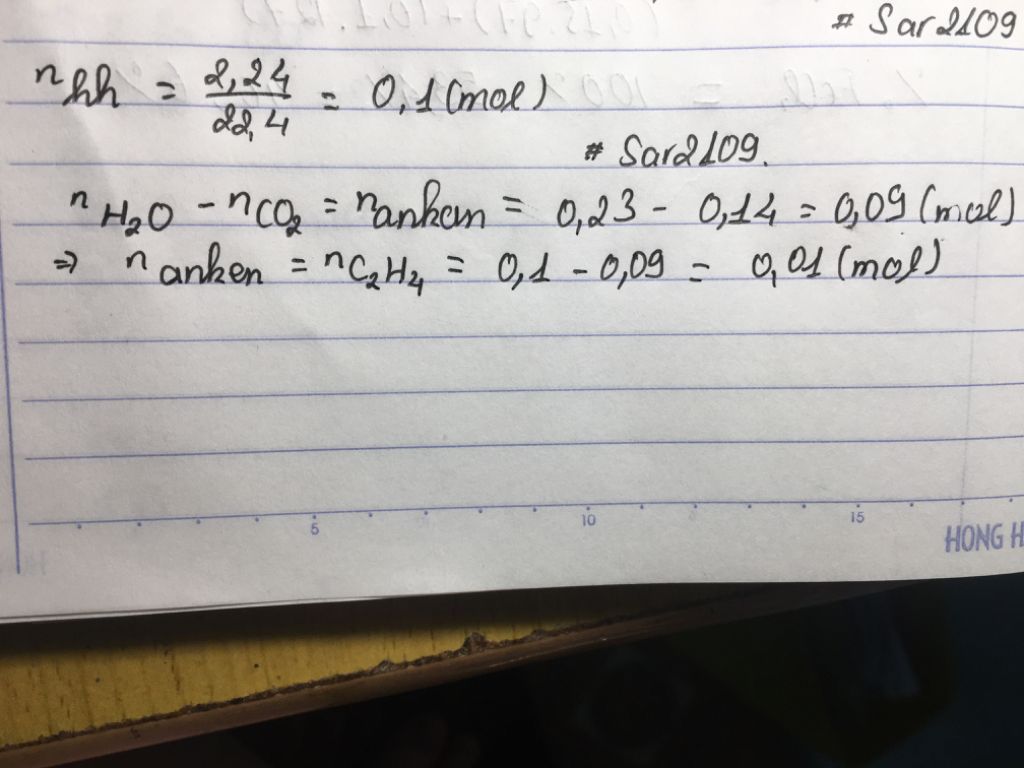 # Sar2109
nhh = 2,24/22,4 = 0,1 (mol)
# Sar2109.
nH₂O - nCO₂ = nankan = 0,23 - 0,14 = 0,09 (mol)
⇒ n anken = nC₂H₄ = 0,1 - 0,09 = 0,01 (mol)
5 10 15
HONG H